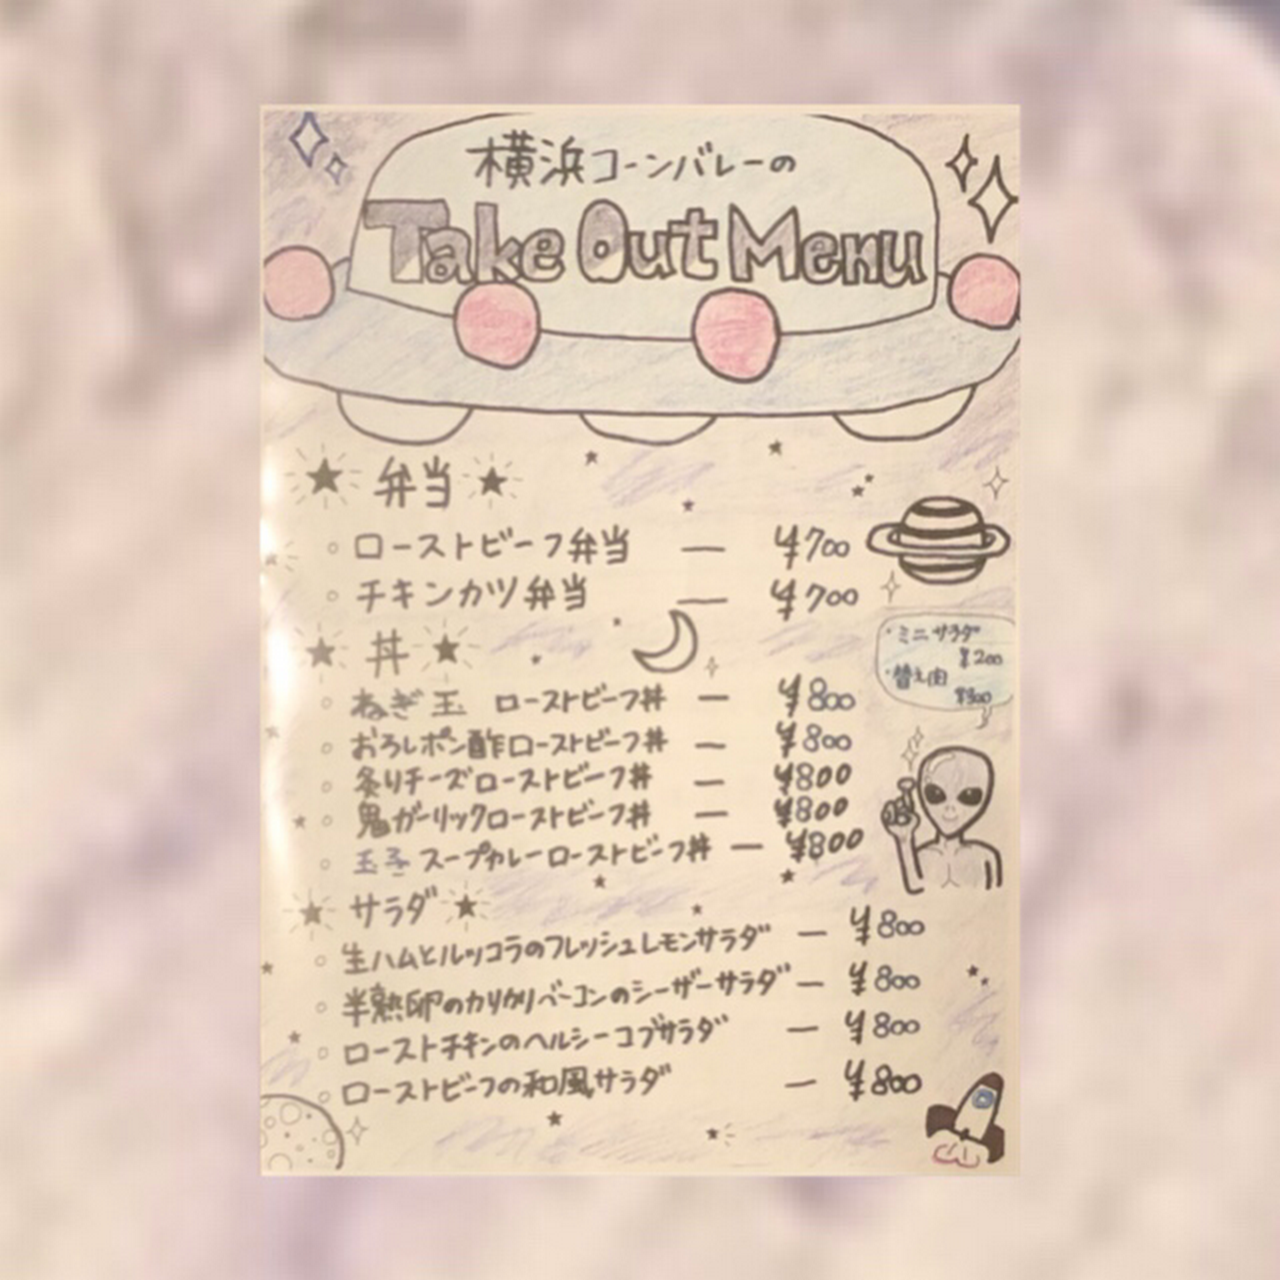 横浜コーンバレーの
Take Out Menu
弁当
ローストビーフ弁当 — ¥700
チキンカツ弁当 — ¥700
丼
ねぎ玉 ローストビーフ丼 — ¥800
おろしポン酢ローストビーフ丼 — ¥800
炙りチーズローストビーフ丼 — ¥800
鬼ガーリックローストビーフ丼 — ¥800
玉子スープカレーローストビーフ丼 — ¥800
・ミニサラダ
¥200
・替え肉
¥300
サラダ
生ハムとルッコラのフレッシュレモンサラダ — ¥800
半熟卵のカリカリベーコンのシーザーサラダ — ¥800
ローストチキンのヘルシーコブサラダ — ¥800
ローストビーフの和風サラダ — ¥800